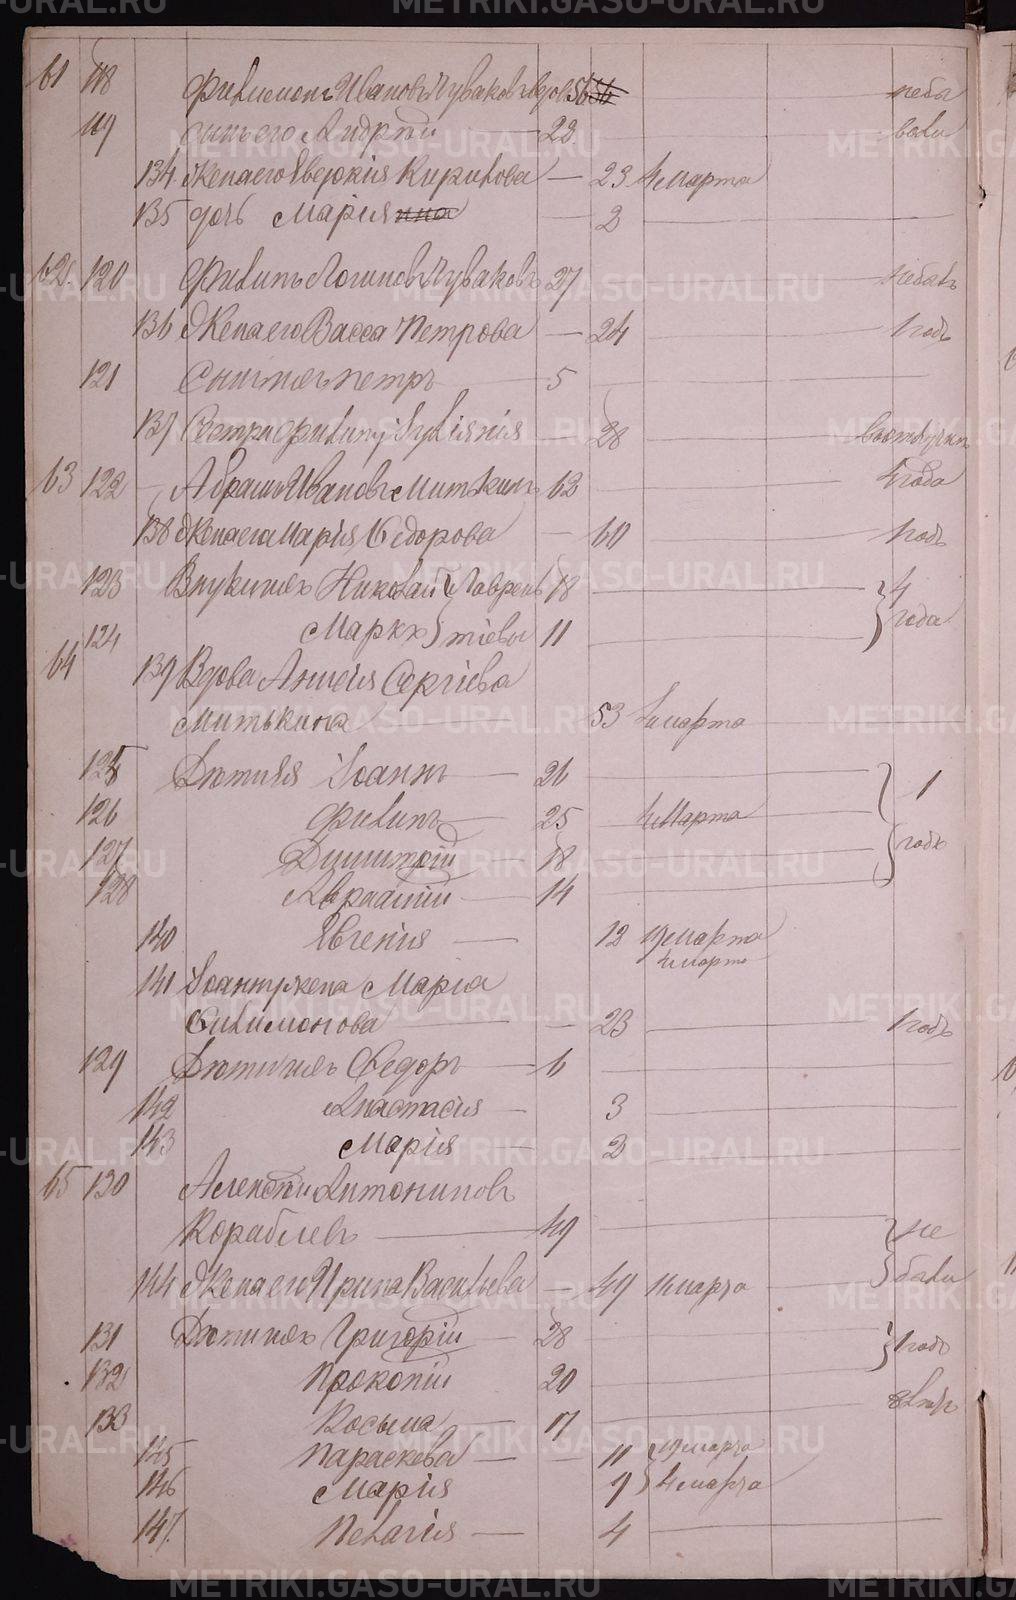 61 118 Филимонъ Ивановъ Чуваковъ вдов 56 небы
119 сынъ его Андрей — 22 вали
134 Жена его Евдокія Кирилова — 23 4 Марта
135 дочь Марія — 2
62. 120 Филипъ Логиновъ Чуваковъ 27 небылъ
136 Жена его Васса Петрова — 24 1 годъ
121 Сынъ ихъ Петръ 5
137 Сестра Филипу Іуліянія — 28
63 122 Абрамъ Ивановъ Митькинъ 62 4 года
138 Жена его Марія Ѳедорова — 60 1 годъ
123 Внуки ихъ Николай } Лаврень 18 } 4
124 Маркъ } тіевы 11 года
64 139 Вдова Анисія Сергіева
Митькина 53 4 марта
125 Дѣти ея Іоаннъ — 26 } 1
126 Филипъ — 25 4 Марта
127 Димитрій — 18 годъ
128 Авраамій — 14
140 Евгенія — 12 19 Марта
4 марта
141 Іоанну жена Марія
Филимонова — 23 1 годъ
129 Дѣти ихъ Ѳедоръ — 6
142 Анастасія — 3
143 Марія 2
65 130 Алексѣй Антониновъ
Кораблевъ — 49 } не
144 Жена его Ирина Васильева — 49 4 марта были
131 Дѣти ихъ Григорій — 28 } 1 годъ
132 Прокопій 20
133 Косьма — 17
145 Параскева — — 11 } 19 марта
146 Марія 9 } 4 марта
147. Пелагія — 4
METRIKI.GASO-URAL.RU